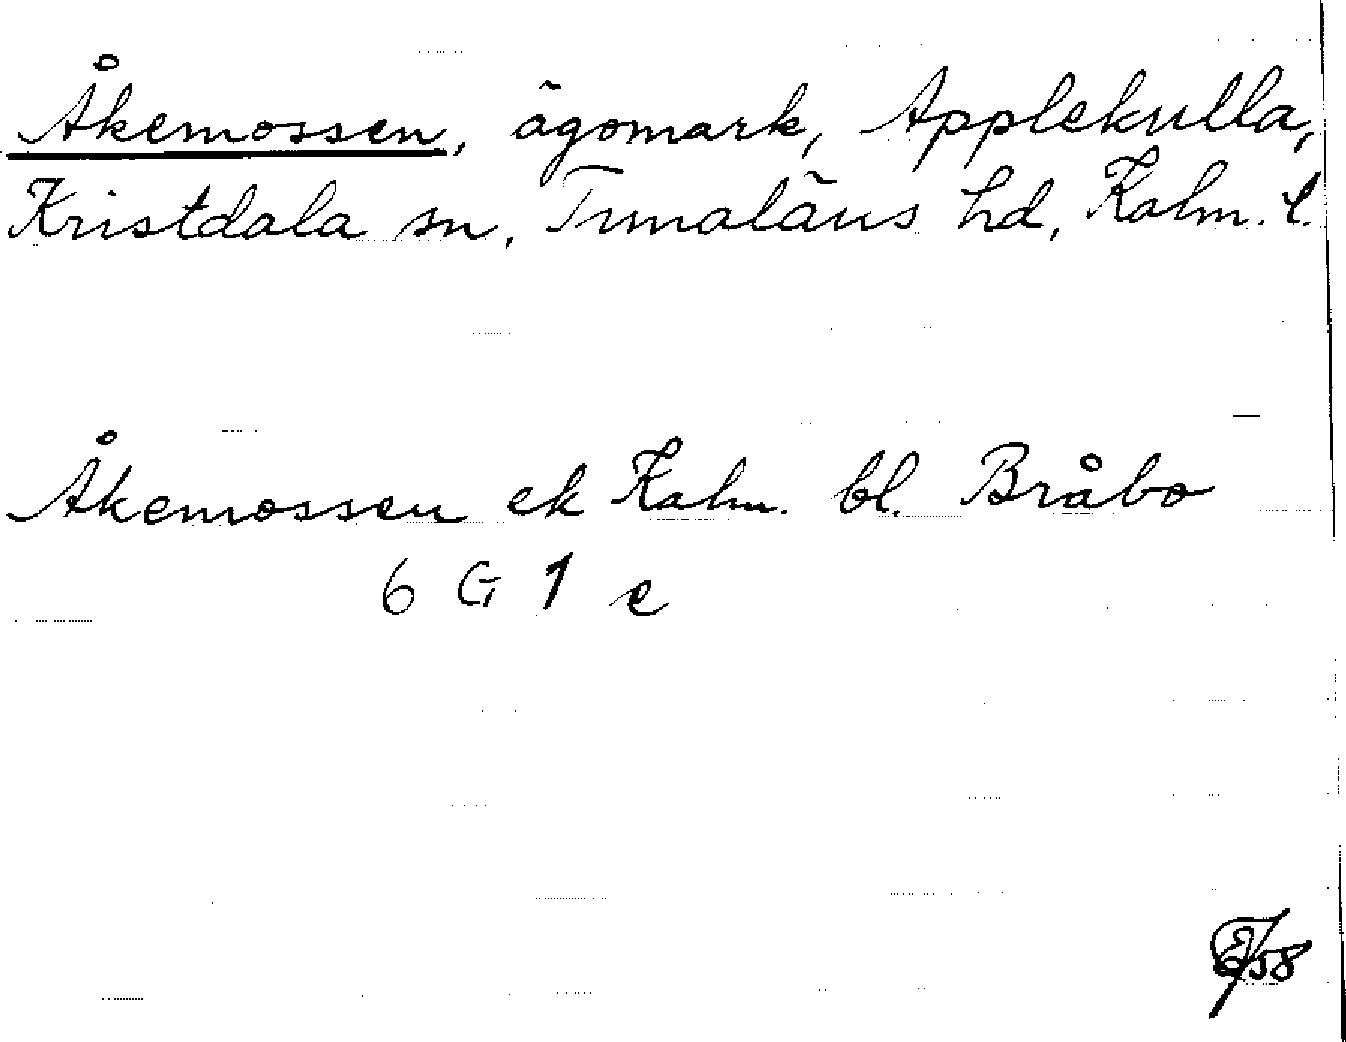 Åkemossen, ägomark, Applekulla,
Kristdala sn, Tunaläns hd, Kalm. l.
Åkemossen ek Kalm. bl. Bråbo
6 G 1 e
/58